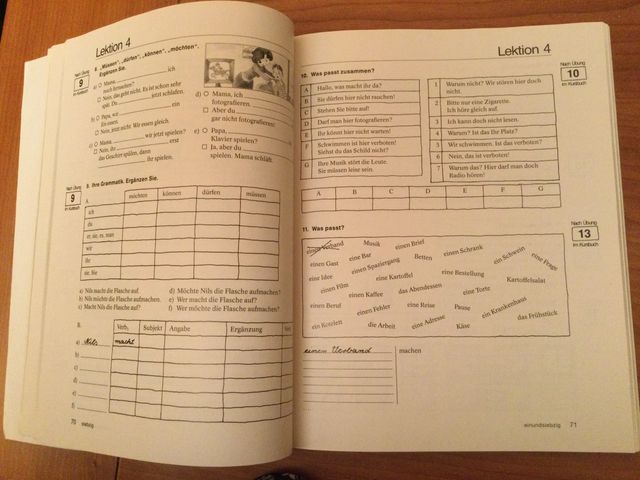 Lektion 4
Nach Übung
9
im Kursbuch
8. „Müssen", „dürfen", „können", „möchten".
Ergänzen Sie.
a) ○ Mama, ich
noch fernsehen?
□ Nein, das geht nicht. Es ist schon sehr
spät. Du jetzt schlafen.
b) ○ Papa, wir ein
Eis essen.
□ Nein, jetzt nicht. Wir essen gleich.
c) ○ Mama, wir jetzt spielen?
□ Nein, ihr erst
das Geschirr spülen, dann
ihr spielen.
d) ○ Mama, ich
fotografieren.
□ Aber du
gar nicht fotografieren!
e) ○ Papa,
Klavier spielen?
□ Ja, aber du
spielen. Mama schläft.
Nach Übung
9
im Kursbuch
9. Ihre Grammatik. Ergänzen Sie.
A. möchten können dürfen müssen
ich
du
er, sie, es, man
wir
ihr
sie, Sie
a) Nils macht die Flasche auf.
b) Nils möchte die Flasche aufmachen.
c) Macht Nils die Flasche auf?
d) Möchte Nils die Flasche aufmachen?
e) Wer macht die Flasche auf?
f) Wer möchte die Flasche aufmachen?
B. Verb₁ Subjekt Angabe Ergänzung Verb
a) Nils macht
b)
c)
d)
e)
f)
70 siebzig
Lektion 4
Nach Übung
10
im Kursbuch
10. Was passt zusammen?
A Hallo, was macht ihr da?
B Sie dürfen hier nicht rauchen!
C Stehen Sie bitte auf!
D Darf man hier fotografieren?
E Ihr könnt hier nicht warten!
F Schwimmen ist hier verboten!
Siehst du das Schild nicht?
G Ihre Musik stört die Leute.
Sie müssen leise sein.
1 Warum nicht? Wir stören hier doch
nicht.
2 Bitte nur eine Zigarette.
Ich höre gleich auf.
3 Ich kann doch nicht lesen.
4 Warum? Ist das Ihr Platz?
5 Wir schwimmen. Ist das verboten?
6 Nein, das ist verboten!
7 Warum das? Hier darf man doch
Radio hören!
A B C D E F G
Nach Übung
13
im Kursbuch
11. Was passt?
einen Verband Musik einen Brief einen Schrank ein Schwein eine Frage
einen Gast eine Bar Betten
eine Idee einen Spaziergang eine Kartoffel eine Bestellung Kartoffelsalat
einen Film einen Kaffee das Abendessen eine Torte
einen Beruf einen Fehler eine Reise Pause ein Krankenhaus
ein Kotelett die Arbeit eine Adresse Käse das Frühstück
einen Verband machen
einundsiebzig 71